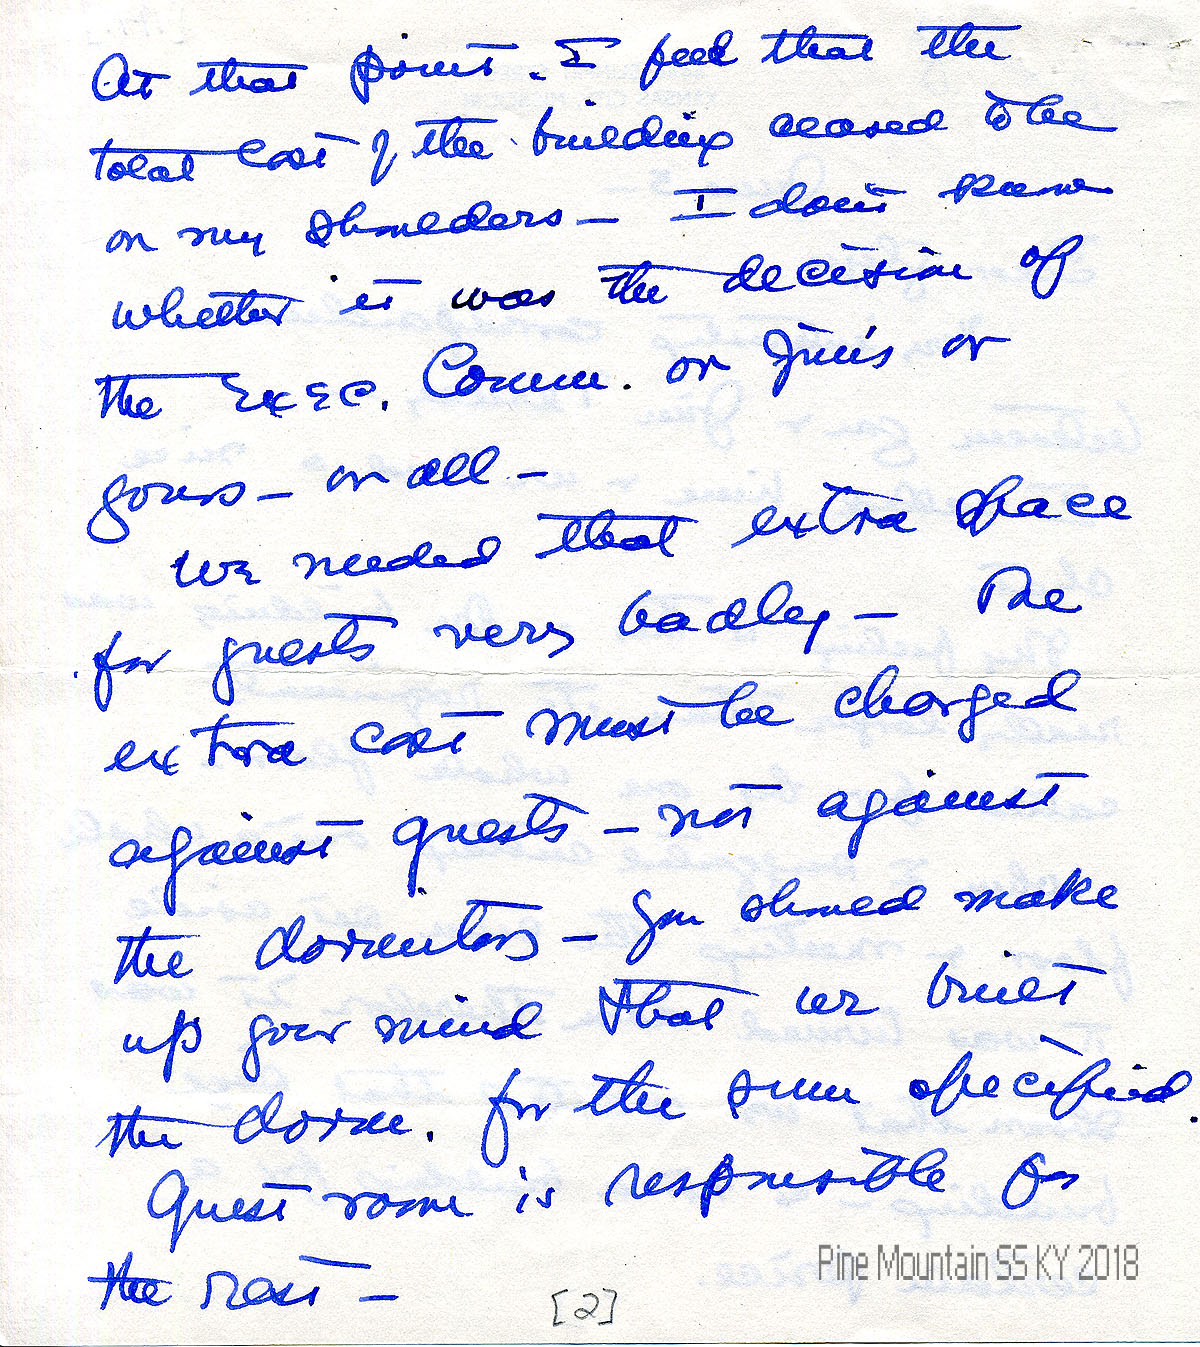 At that point. I feel that the
total cost of the building ceased to be
on my shoulders — I don't know
whether it was the decision of
the Exec. Comm. or Jim's or
yours — or all —
We needed that extra space
for guests very badly — The
extra cost must be charged
against guests — not against
the dormitory — you should make
up your mind that we built
the dorm. for the sum specified.
Guest room is responsible for
the rest —
[2]
Pine Mountain SS KY 2018